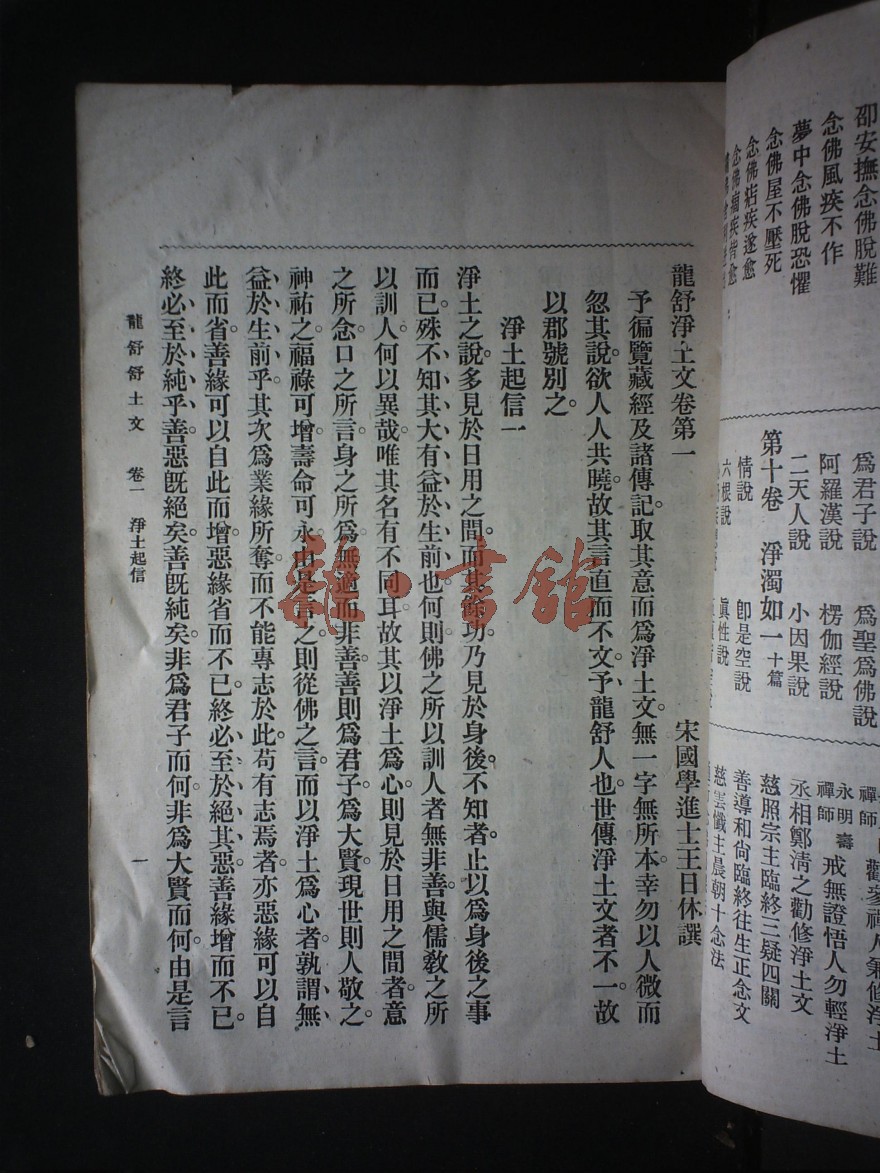 邵安撫念佛脫難
念佛風疾不作
夢中念佛脫恐懼
念佛屋不壓死
念佛痁疾遂愈
念佛痼疾皆愈
爲君子說 爲聖爲佛說
阿羅漢說 楞伽經說
二天人說 小因果說
第十卷 淨濁如一十篇
情說 卽是空說
六根說 眞性說
禪師 勸參禪人兼修淨土
永明壽禪師 戒無證悟人勿輕淨土
丞相鄭淸之勸修淨土文
慈照宗主臨終三疑四關
善導和尙臨終往生正念文
慈雲懺主晨朝十念法
龍舒淨土文卷第一
宋國學進士王日休譔
予徧覽藏經及諸傳記取其意而爲淨土文。無一字無所本。幸勿以人微而
忽其說。欲人人共曉。故其言直而不文。予龍舒人也。世傳淨土文者不一。故
以郡號別之。
淨土起信一
淨土之說。多見於日用之間。而其餘功。乃見於身後。不知者。止以爲身後之事
而已。殊不知其大有益於生前也。何則佛之所以訓人者。無非善。與儒敎之所
以訓人。何以異哉。唯其名有不同耳。故其以淨土爲心。則見於日用之間者。意
之所念。口之所言。身之所爲。無適而非善。善則爲君子。爲大賢。現世則人敬之。
神祐之。福祿可增。壽命可永。由是言之。則從佛之言。而以淨土爲心者。孰謂無
益於生前乎。其次爲業緣所奪。而不能專志於此。苟有志焉者。亦惡緣可以自
此而省。善緣可以自此而增。惡緣省而不已。終必至於絕其惡。善緣增而不已。
終必至於純乎善。惡旣絕矣。善旣純矣。非爲君子而何。非爲大賢而何。由是言
龍舒舒土文 卷一 淨土起信 一